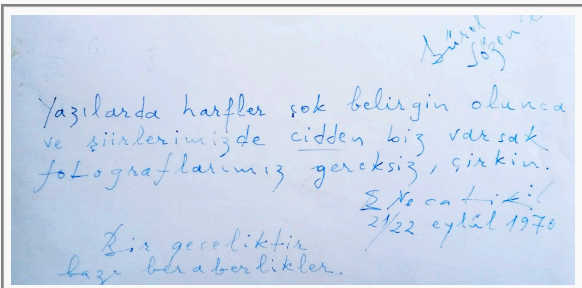 Gürol
Sözen'e
Yazılarda harfler çok belirgin olunca
ve şiirlerimizde cidden biz varsak
fotoğraflarımız gereksiz, çirkin.
B Necatigil
21/22 eylûl 1970
Bir geceliktir
bazı beraberlikler.